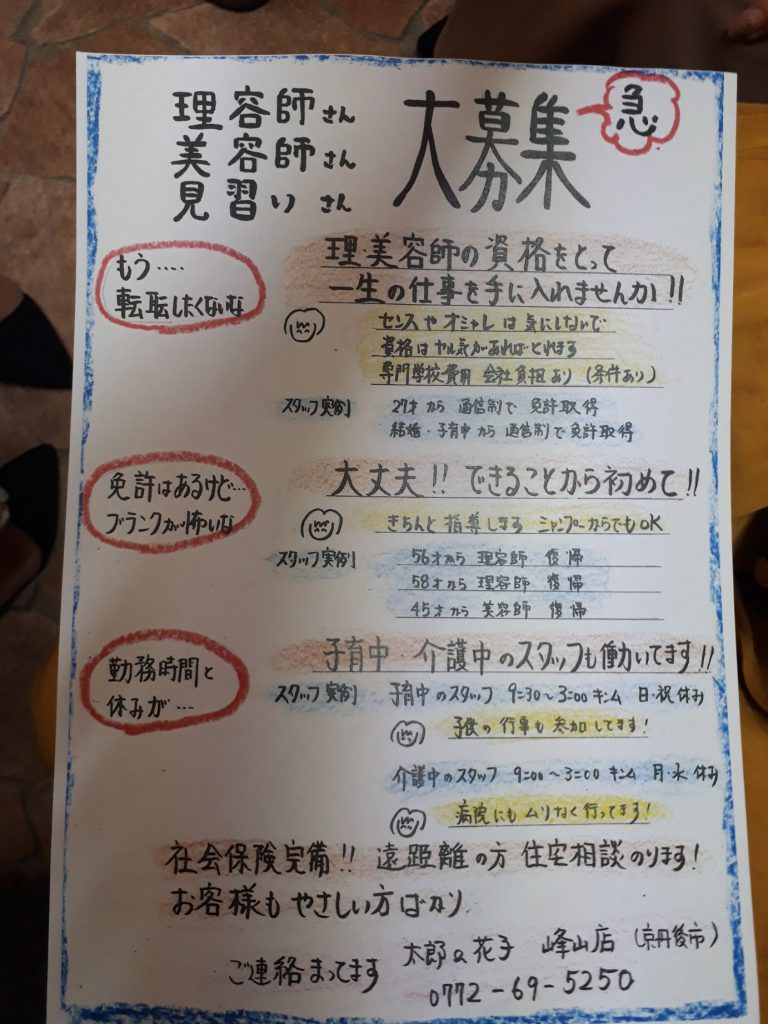 理容師さん
美容師さん
見習いさん
大募集
急
もう‥‥
転職したくないな
理・美容師の資格をとって
一生の仕事を手に入れませんか!!
センスやオシャレは気にしないで
資格はヤル気があればとれます
専門学校費用 会社負担あり (条件あり)
スタッフ実例 27才から 通信制で 免許取得
結婚・子育中から 通信制で 免許取得
免許はあるけど…
ブランクが怖いな
大丈夫!! できることから初めて!!
きちんと指導します シャンプーからでもOK
スタッフ実例 56才から 理容師 復帰
58才から 理容師 復帰
45才から 美容師 復帰
勤務時間と
休みが…
子育中・介護中のスタッフも働いてます!!
スタッフ実例 子育中のスタッフ 9=30~3=00 キンム 日・祝休み
子供の行事も参加してます!
介護中のスタッフ 9=00~3=00 キンム 月・水 休み
病院にもムリなく行ってます!
社会保険完備!! 遠距離の方 住宅相談のります!
お客様もやさしい方ばかり
ご連絡まってます
太郎a花子 峰山店 (京丹後市)
0772-69-5250